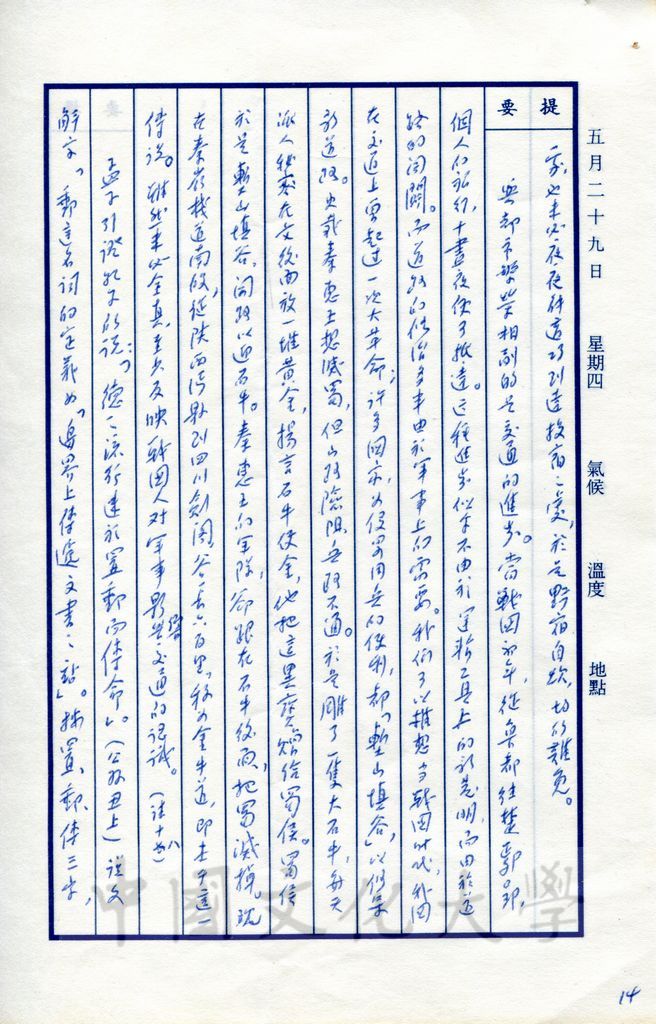 五月二十九日 星期四 氣候 溫度 地點
提要
家,也未必夜夜能適巧到達投宿之處,於是野宿自炊,均所難免。
與都市繁榮相副的是交通的進步。當戰國初年,從魯都往楚郢郢,
個人的旅行,十晝夜便可抵達。這種進步似乎不由於運輸工具上的新發明,而由於道
路的開闢。而道路的修治多半由於軍事上的需要。我們可以推想當戰國時代,我國
在交通上曾起過一次大革命;許多國家為侵略用兵的便利,都「塹山填谷」以修築
新道路。史載秦惠王想滅蜀,但山路險阻,無路可通。於是雕了一隻大石牛,每天
派人秘密在文後面放一堆黃金,揚言石牛便金,他把這異寶贈給蜀侯。蜀侯
於是塹山填谷,開路以迎石牛。秦惠王的軍隊,卻跟在石牛後面,把蜀滅掉,現
在秦嶺棧道南段,從陝西沔縣到四川劍閣,谷長六百里,稱為金牛道,即本乎這一
傳說。雖然未必全真,至少反映戰國人對軍事影響交通的認識。(註十八)
孟子引證孔子的說:「德之流行速於置郵而傳命」。(公孫丑上)說文
解字「郵這名詞的定義為「邊界上傳遞文書之站」。按置、郵、傳三字,
14
中國文化大學